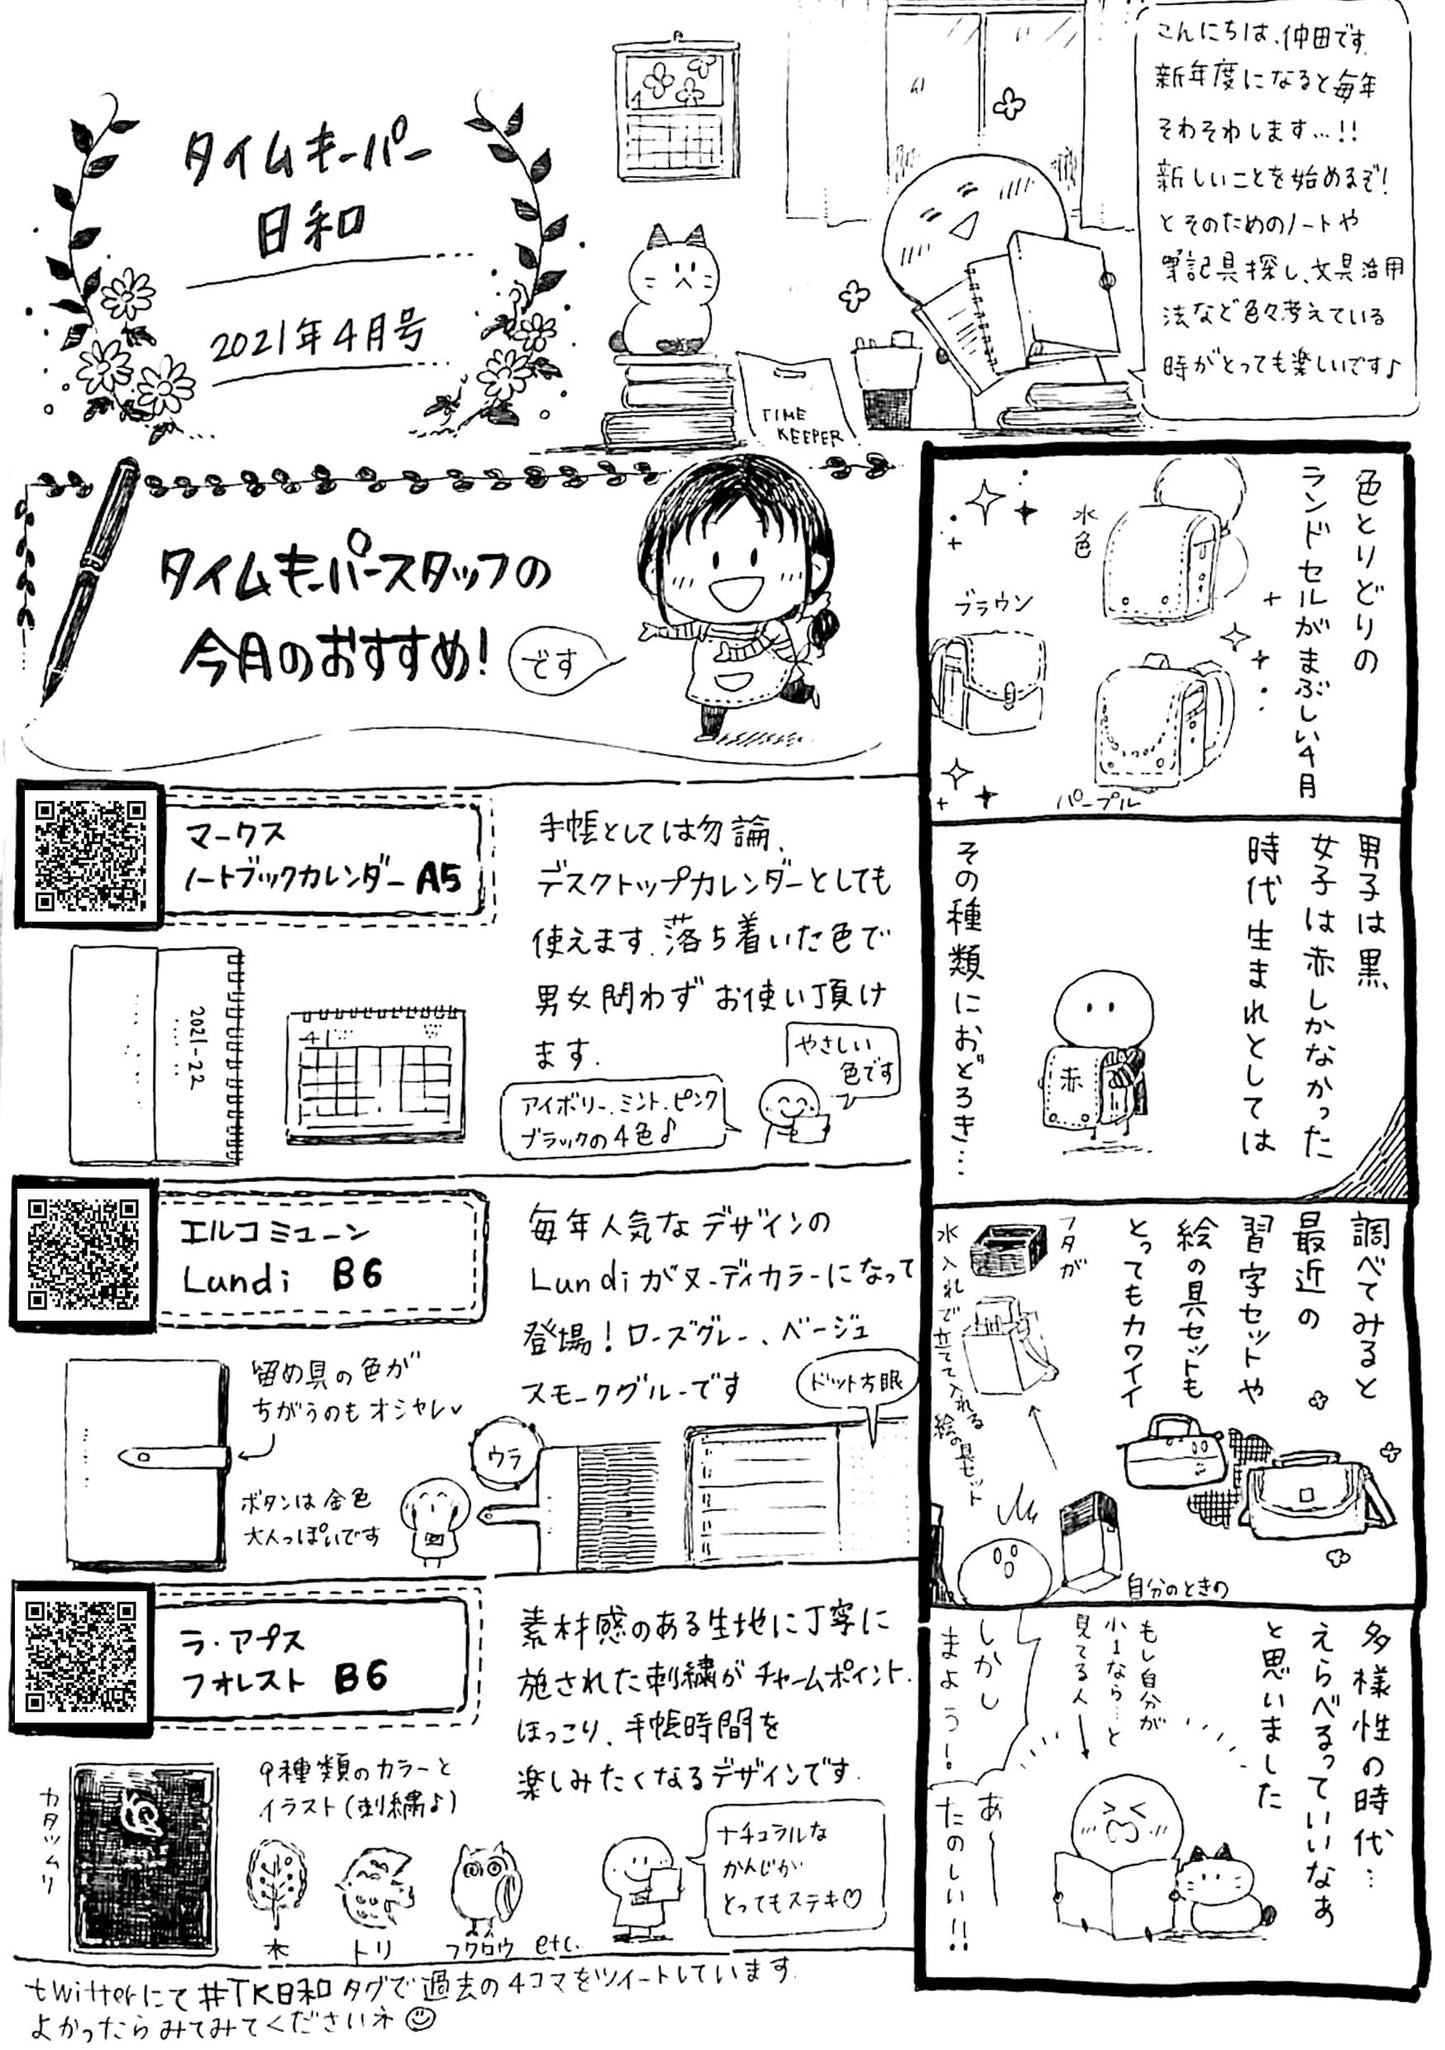 タイムキーパー
日和
2021年4月号
TIME
KEEPER
こんにちは、仲田です。
新年度になると毎年
そわそわします…!!
新しいことを始めるぞ!
とそのためのノートや
筆記具探し、文具活用
法など色々考えている
時がとっても楽しいです♪
タイムキーパースタッフの
今月のおすすめ!
です
マークス
ノートブックカレンダー A5
手帳としては勿論、
デスクトップカレンダーとしても
使えます。落ち着いた色で
男女問わずお使い頂け
ます。
2021-22
4
やさしい
色です
アイボリー、ミント、ピンク
ブラックの4色♪
エルコミューン
Lundi B6
毎年人気なデザインの
Lundiがヌーディカラーになって
登場!ローズグレー、ベージュ
スモークグルーです
留め具の色が
ちがうのもオシャレ
ボタンは金色
大人っぽいです
ウラ
ドット方眼
ラ・アプス
フォレスト B6
素材感のある生地に丁寧に
施された刺繍がチャームポイント。
ほっこり、手帳時間を
楽しみたくなるデザインです。
カタツムリ
9種類のカラーと
イラスト(刺繍♪)
木
トリ
フクロウ etc.
ナチュラルな
かんじが
とってもステキ♡
twitterにて#TK日和タグで過去の4コマをツイートしています。
よかったらみてみてくださいネ☺
色とりどりの
ランドセルがまぶしい4月
水色
ブラウン
パープル
男子は黒、
女子は赤しかなかった
時代生まれとしては
その種類におどろき…
赤
調べてみると
最近の
習字セットや
絵の具セットも
とってもカワイイ
フタが
水入れで立てて入れる
絵の具セット
自分のときの
多様性の時代…
えらべるっていいなぁ
と思いました
もし自分が
小1なら…と
見てる人
しかし
まよう!
あ〜
たのしい!!